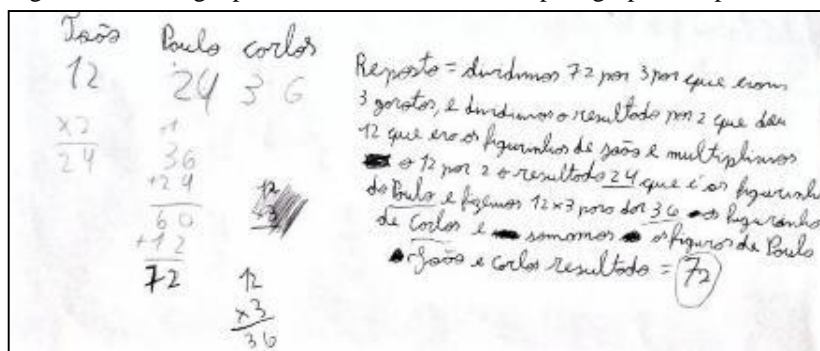 João Paulo Carlos
12 24 36
x2
24
+1
36
+24
60
+12
72
12
x3
36
Reposto = dividimos 72 por 3 por que eram
3 garotos, e dividimos o resultado por 2 que deu
12 que era as figurinhas de joão e multiplimos
o 12 por 2 o resultado 24 que é as figurinha
do Paulo e fizemos 12x3 para dar 36 as figuranha
de Carlos e somamos as figuras de Paulo
João e Carlos resultado = 72